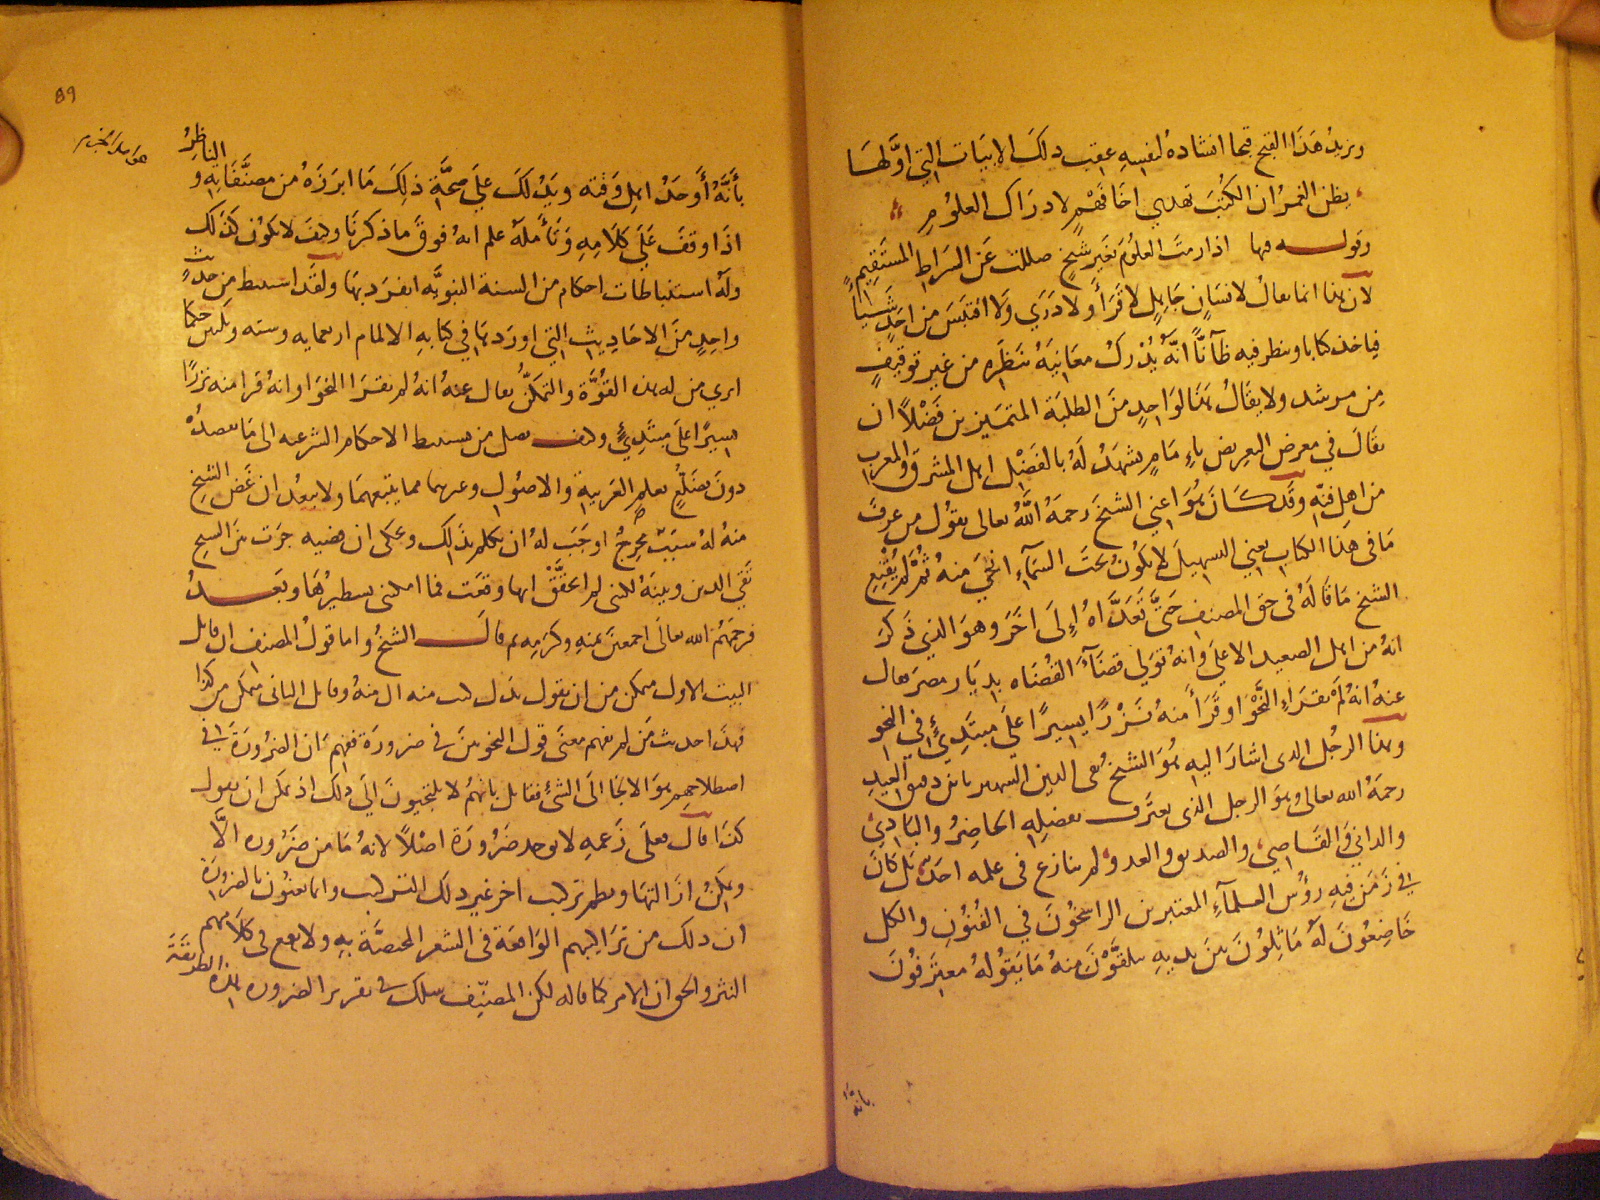 ويزيد هذا القبح قبحا انشاده لنفسه عقيب ذلك الابيات التي اولها
يظن الغمر ان الكتب تهدي اخا فهم لادراك العلوم
وقوله فيها اذا رمت العلوم بغير شيخ ضللت عن الصراط المستقيم
لان هذا انما يقال لانسان جاهل لا قرأ ولا دري ولا اقتبس من احد شيئا
فياخذ كتابا وينظر فيه ظآنًّا انه يدرك معانيه بنظره من غير توقيف
من مرشد ولا يقال هذا لواحد من الطلبة المتميزين فضلاً ان
يقال في معرض التعريض بإمام يشهد له بالفضل اهل المشرق والمغرب
من اهل فنه وقد كان هو اعني الشيخ رحمه الله تعالى يقول من عرف
ما في هذا الكتاب يعني التسهيل لا يكون تحت السمآء انحي منه ثم لم يقنع
الشيخ ما قاله في حق المصنف حتى تعداه إلى آخر وهو الذي ذكر
انه من اهل الصعيد الاعلى وانه تولي قضآء القضاه بديار مصر فقال
عنه انه لم يقرإ النحو او قرأ منه نزرًا يسيرًا على مبتدئ في النحو
وهذا الرجل الذي اشار اليه هو الشيخ تقي الدين الشهير بابن دقيق العيد
رحمه الله تعالى وهو الرجل الذي يعترف بفضله الحاضر والبادي
والداني والقاصي والصديق والعدو ولم ينازع في علمه احد بل كان
في زمن فيه رؤس العلمآء المعتبرين الراسخون في الفنون والكل
خاضعون له ماثلون بين يديه يتلقون منه ما يقوله معترفون
بانه
89
بأنه أوحد اهل وقته ويدلك على صحة ذلك ما ابرزه من مصنفاته والناظر
اذا وقف على كلامه وتأمله علم انه فوق ما ذكرنا وكيف لا يكون كذلك
وله استنباطات احكام من السنة النبويّه انفرد بها ولقد استنبط من حديث
واحد من الاحاديث التي اوردها في كتابه الالمام اربعمايه وسته وثلثين حكما
افترى من له هذه القوة والتمكن يقال عنه انه لم يقرا النحو او انه قرا منه نزرًا
يسيرًا على مبتدئ وكيف يصل من يستنبط الاحكام الشرعيه الى ما يقصده
دون تضلع بعلم العربية والاصول وغيرهما مما يتبعهما ولا يبعد ان غض الشيخ
منه له سبب محرج اوجب له ان يتكلم بذلك وحكى ان قضيه جرت بين الشيخ
تقي الدين وبينه لكني لم اتحقق انها وقعت فما امكنني تسطيرها وبعد
فرحمهم الله تعالى اجمعين بمنه وكرمه ثم قال الشيخ واما قول المصنف ان قايل
البيت الاول متمكن من ان يقول بدل كيت منه ال منه وقايل الثاني متمكن من كذا
فهذا حديث من لم يفهم معنى قول النحويين في ضرورة ففهم ان الضرورة في
اصطلاحهم هو الالجا الى الشئ فقايل بانهم لا يلتجيون الى ذلك اذ يمكن ان يقول
كذا قال فعلى زعمه لا توجد ضرورة اصلاً لانه ما من ضروره الَّا
ويمكن ازالتها ونظم تركيب اخر غير ذلك التركيب وانما يعنون بالضرورة
ان ذلك من تراكيبهم الواقعة في الشعر المختصّة به ولا يقع في كلامهم
النثر والحق ان الامر كما قاله لكن المصنّف سلك في تقرير الضروره هذه الطريقة